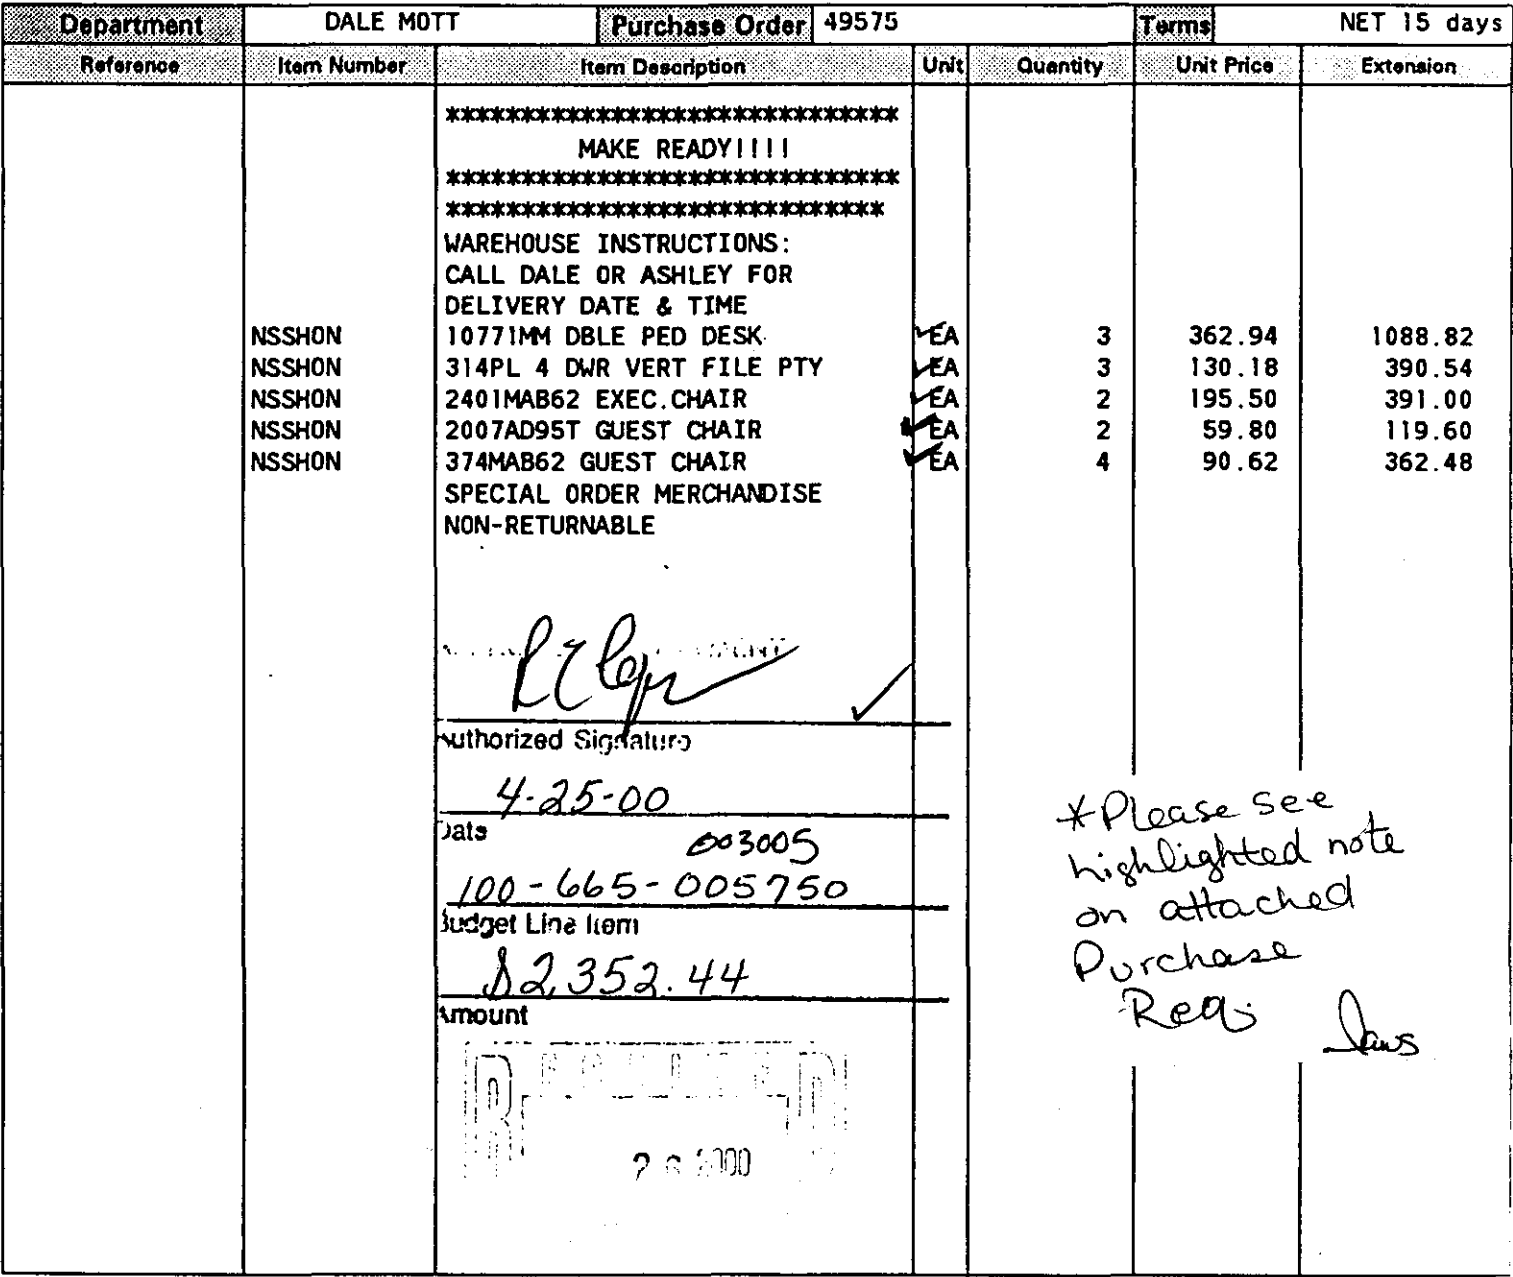 Department DALE MOTT Purchase Order 49575 Terms NET 15 days
Reference Item Number Item Description Unit Quantity Unit Price Extension
******************************
MAKE READY!!!!
******************************
*****************************
WAREHOUSE INSTRUCTIONS:
CALL DALE OR ASHLEY FOR
DELIVERY DATE & TIME
NSSHON 10771MM DBLE PED DESK EA 3 362.94 1088.82
NSSHON 314PL 4 DWR VERT FILE PTY EA 3 130.18 390.54
NSSHON 2401MAB62 EXEC.CHAIR EA 2 195.50 391.00
NSSHON 2007AD95T GUEST CHAIR EA 2 59.80 119.60
NSSHON 374MAB62 GUEST CHAIR EA 4 90.62 362.48
SPECIAL ORDER MERCHANDISE
NON-RETURNABLE
Authorized Signature
4-25-00
Date
003005
100-665-005750
Budget Line Item
$2,352.44
Amount
RECEIVED
26 2000
*Please see
highlighted note
on attached
Purchase
Req.